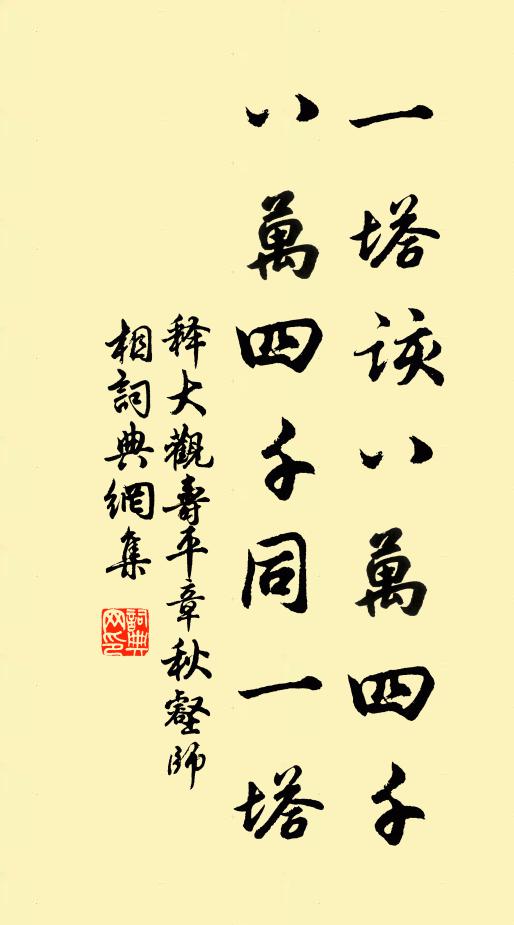 一塔該八萬四千
八萬四千同一塔
释大觀壽平章秋壑師
相詞典網集
詞典
网印